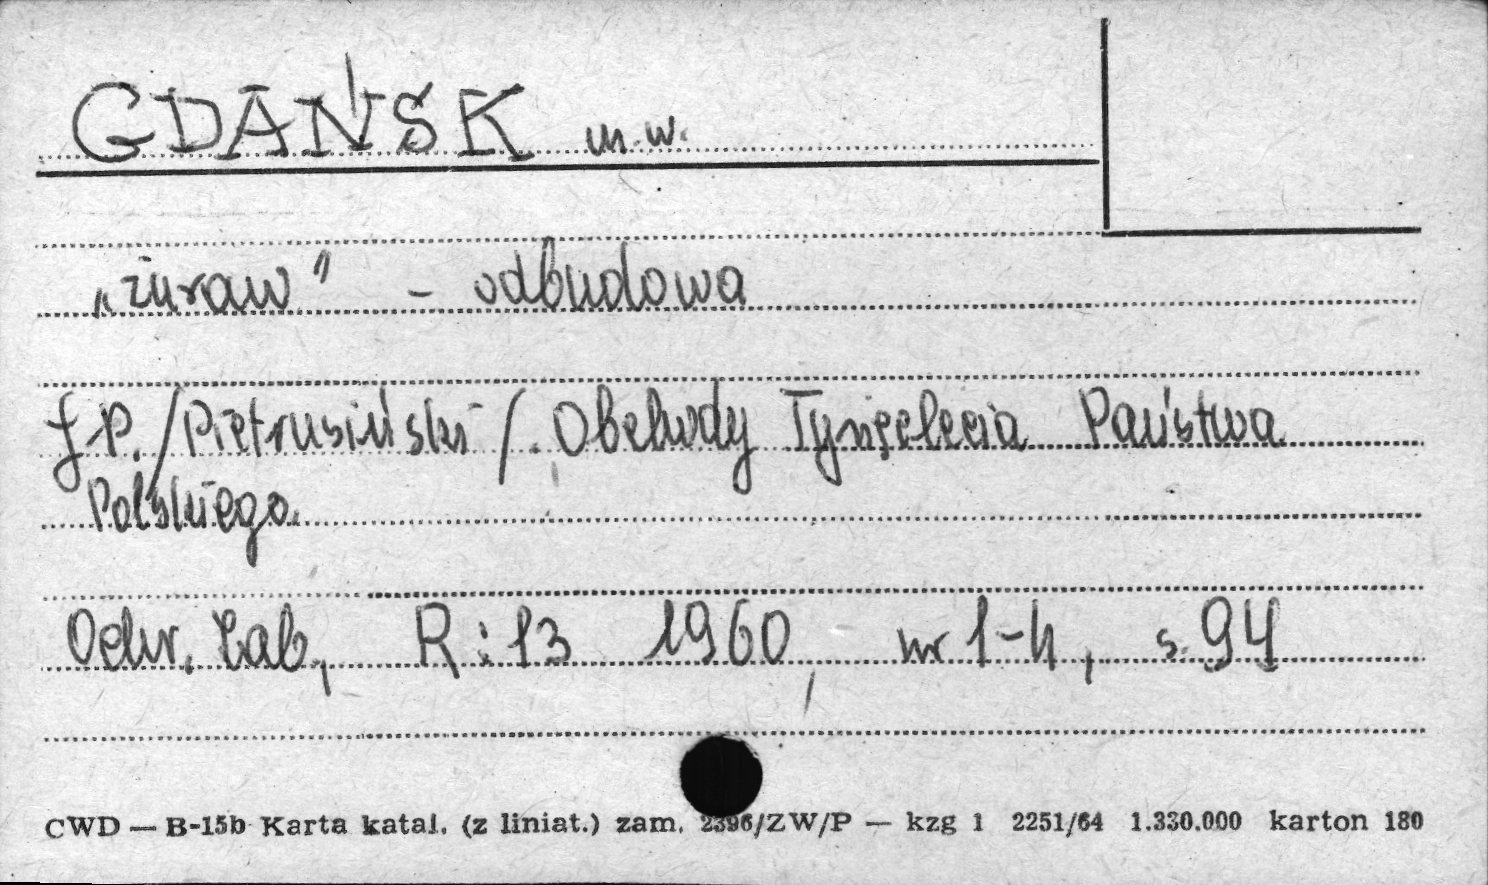 GDAŃSK m.w.
„żuraw" - odbudowa
J.P. /Pietrusiński/. Obchody Tysięclecia Państwa
Polskiego.
Ochr. Zab., R: 13 1960, nr 1-4, s. 94
CWD — B-15b Karta katal. (z liniat.) zam. 2396/ZW/P — kzg 1 2251/64 1.330.000 karton 180